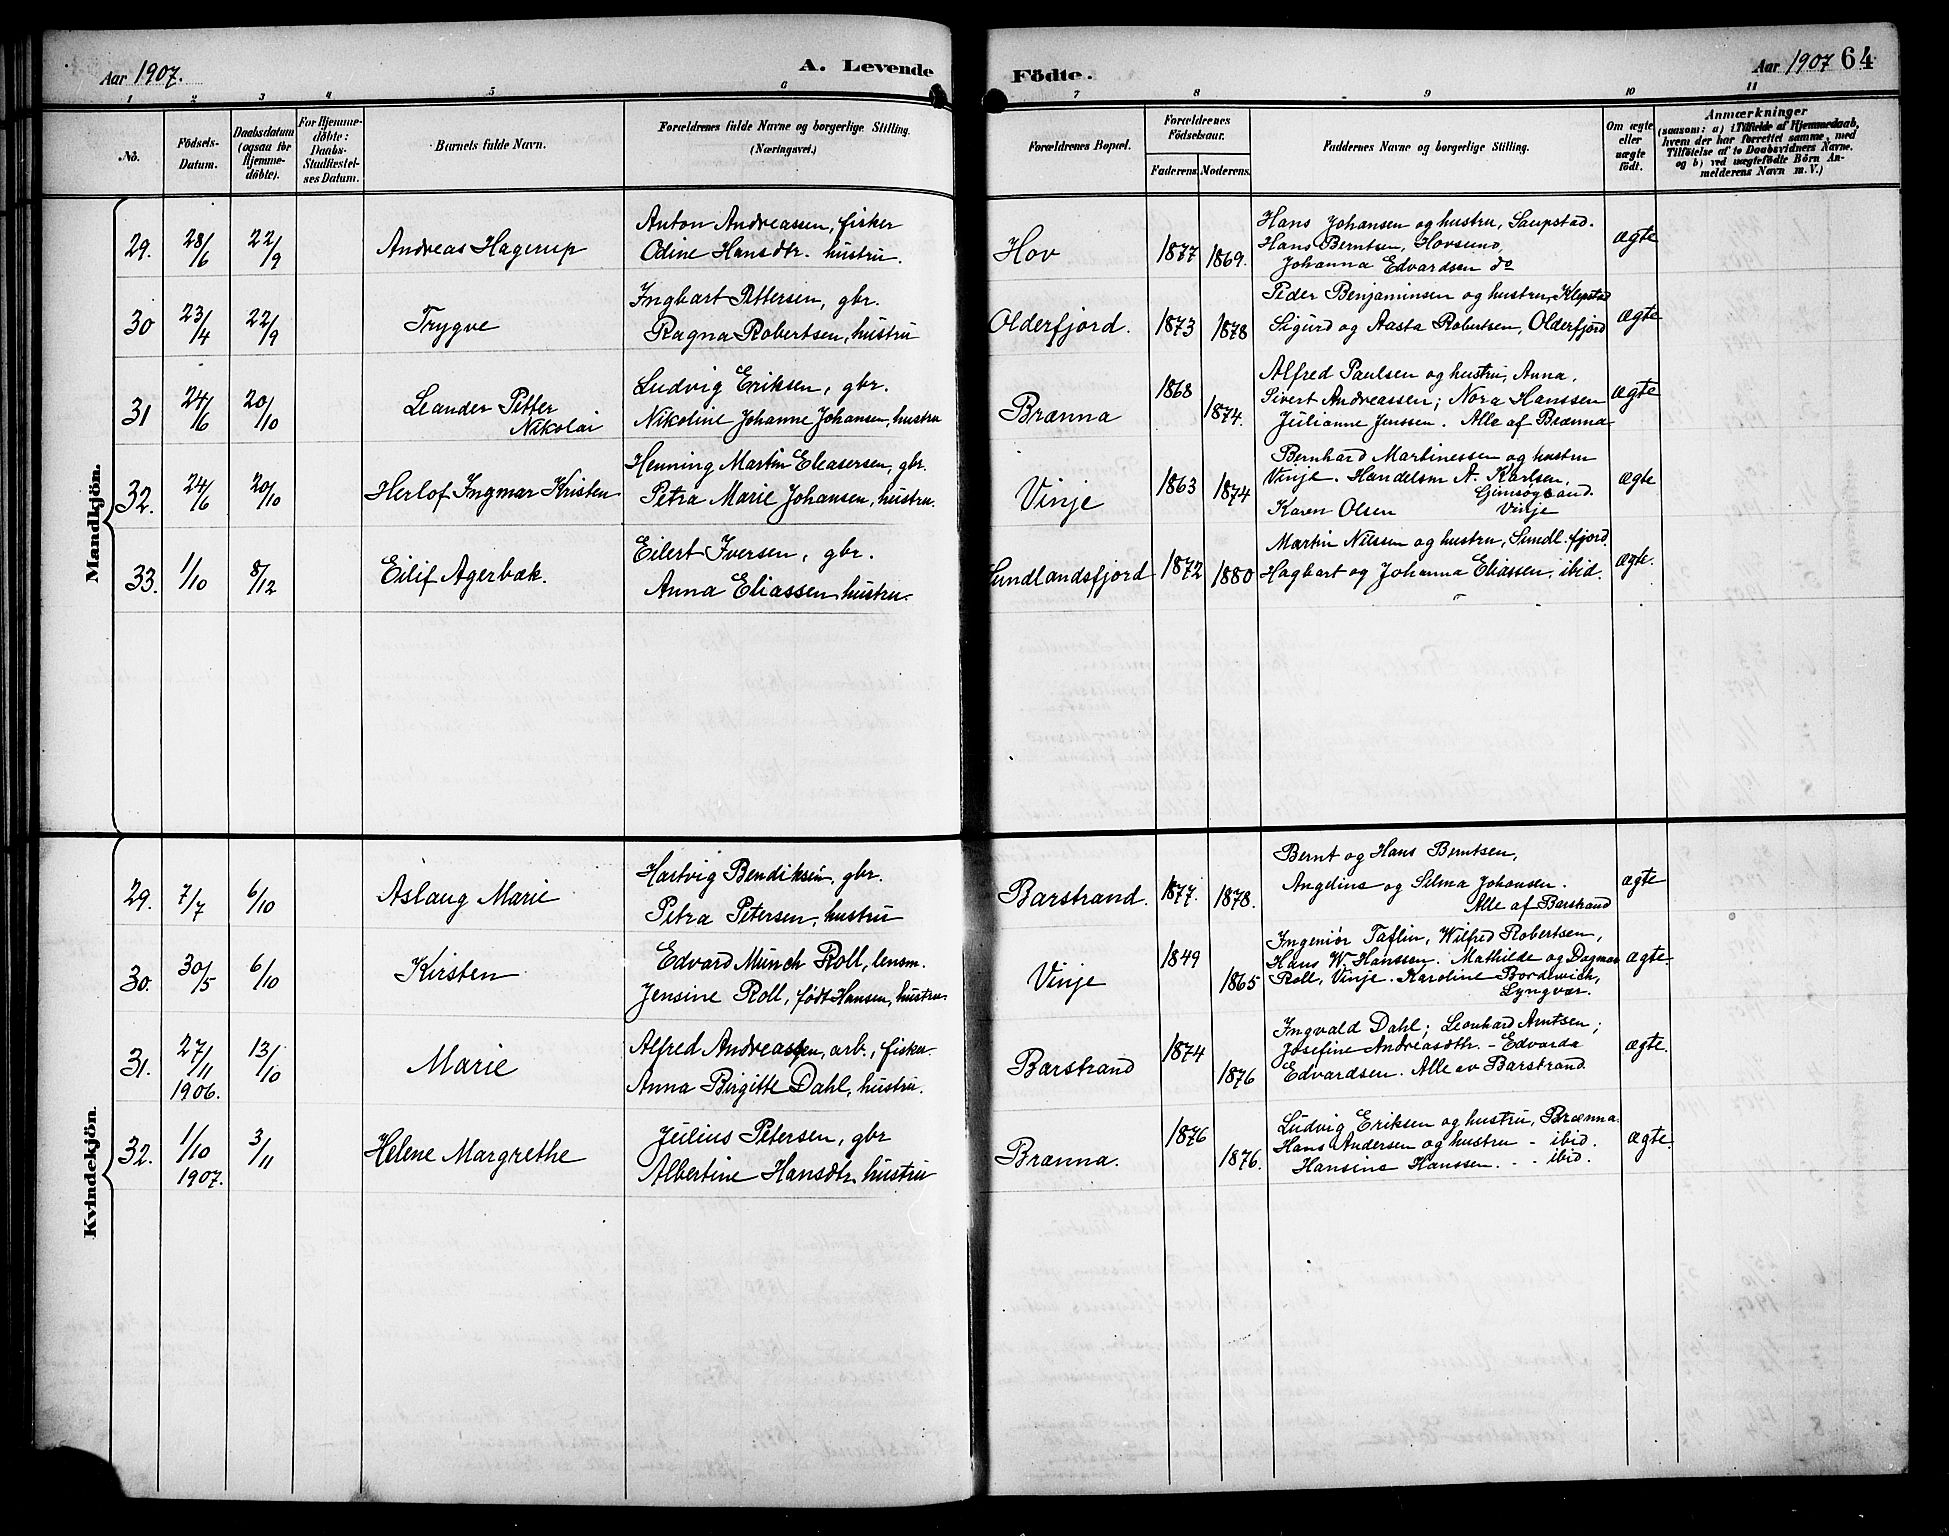 Aar 1907.
A. Levende Födte.
Aar 1907 64
1 2 3 4 5 6 7 8 9 10 11
No.
Födsels-
Datum.
Daabsdatum
(ogsaa for
Hjemme-
döbte).
For Hjemme-
döbte:
Daabs-
Stadfæstel-
ses Datum.
Barnets fulde Navn.
Forældrenes fulde Navne og borgerlige Stilling.
(Næringsvei.)
Forældrenes Bopæl.
Forældrenes
Födselsaar.
Faderens. Moderens.
Faddernes Navne og borgerlige Stilling.
Om ægte
eller
uægte
födt.
Anmærkninger
(saasom: a) i Tilfælde af Hjemmedaab,
hvem der har forrettet samme, med
Tilföielse af to Daabsvidners Navne.
og b) ved uægtefödte Börn An-
melderens Navn m. V.)
Mandkjön.
29. 28/6 22/9 Andreas Hagerup
Anton Andreassen, fisker
Odine Hansdtr. hustru.
Hov 1877 1869.
Hans Johansen og hustru, Saupstad.
Hans Berntsen, Hovsund,
Johanna Edvardsen do
ægte
30 23/4 22/9 Trygve
Ingbart Pettersen, gbr.
Ragna Robertsen, hustru
Olderfjord. 1873 1878
Peder Benjaminsen og hustru, Klepstad
Sigurd og Aasta Robertsen, Olderfjord
ægte
31 24/6 20/10 Leander Petter
Nikolai
Ludvig Eriksen, gbr.
Nikoline Johanne Johansen, hustru
Brænna 1868 1874.
Alfred Paulsen og hustru, Anna,
Sivert Andreassen; Nora Hanssen
Julianne Jenssen. Alle af Brænna
ægte
32. 24/6 20/10 Herlof Ingmar Kristen
Henning Martin Eleasersen, gbr.
Petra Marie Johansen, hustru.
Vinje 1863 1874
Bernhard Martinessen og hustru
Vinje. Handelsm A. Karlsen,
Gimsøysand.
Karen Olsen Vinje
ægte
33. 1/10 8/12 Eilif Agerbæk.
Eilert Iversen, gbr.
Anna Eliassen hustru.
Sundlandsfjord 1872 1880
Martin Nilssen og hustru, Sundl.fjord.
Hagbart og Johanna Eliassen. ibid.
ægte.
Kvindekjön.
29. 7/7 6/10 Aslaug Marie
Hartvig Bendiksen, gbr.
Petra Petersen, hustru
Barstrand. 1877. 1878.
Bernt og Hans Berntsen,
Angelina og Selma Johansen.
Alle af Barstrand
ægte
30. 30/5 6/10 Kirsten
Edvard Münch Roll, lensm.
Jensine Roll, født Hansen, hustru.
Vinje 1849 1865
Ingeniør Taflin, Wilfred Robertsen,
Hans W. Hanssen. Mathilde og Dagmar
Roll, Vinje. Karoline Bordewich,
Lyngvær.
ægte.
31. 27/11 1906. 13/10 Marie
Alfred Andreassen, arb., fisker.
Anna Birgitte Dahl, hustru.
Barstrand 1874 1876
Ingvald Dahl; Leonhard Arntsen;
Josefine Andreasdtr. - Edvarda
Edvardsen. Alle av Barstrand
ægte.
32. 1/10 1907. 3/11 Helene Margrethe
Julius Petersen, gbr
Albertine Hansdtr hustru
Brænna. 1876 1876.
Ludvig Eriksen og hustru, Brænna.
Hans Andersen og hustru - ibid.
Hansine Hanssen. - - ibid.
ægte.